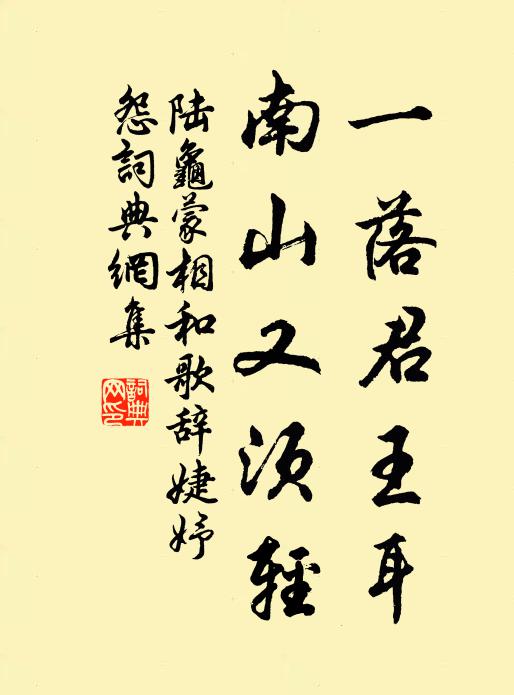 一落君王耳
南山又须輕
陆龜蒙相和歌辞婕妤
怨詞典網集
詞典
网印